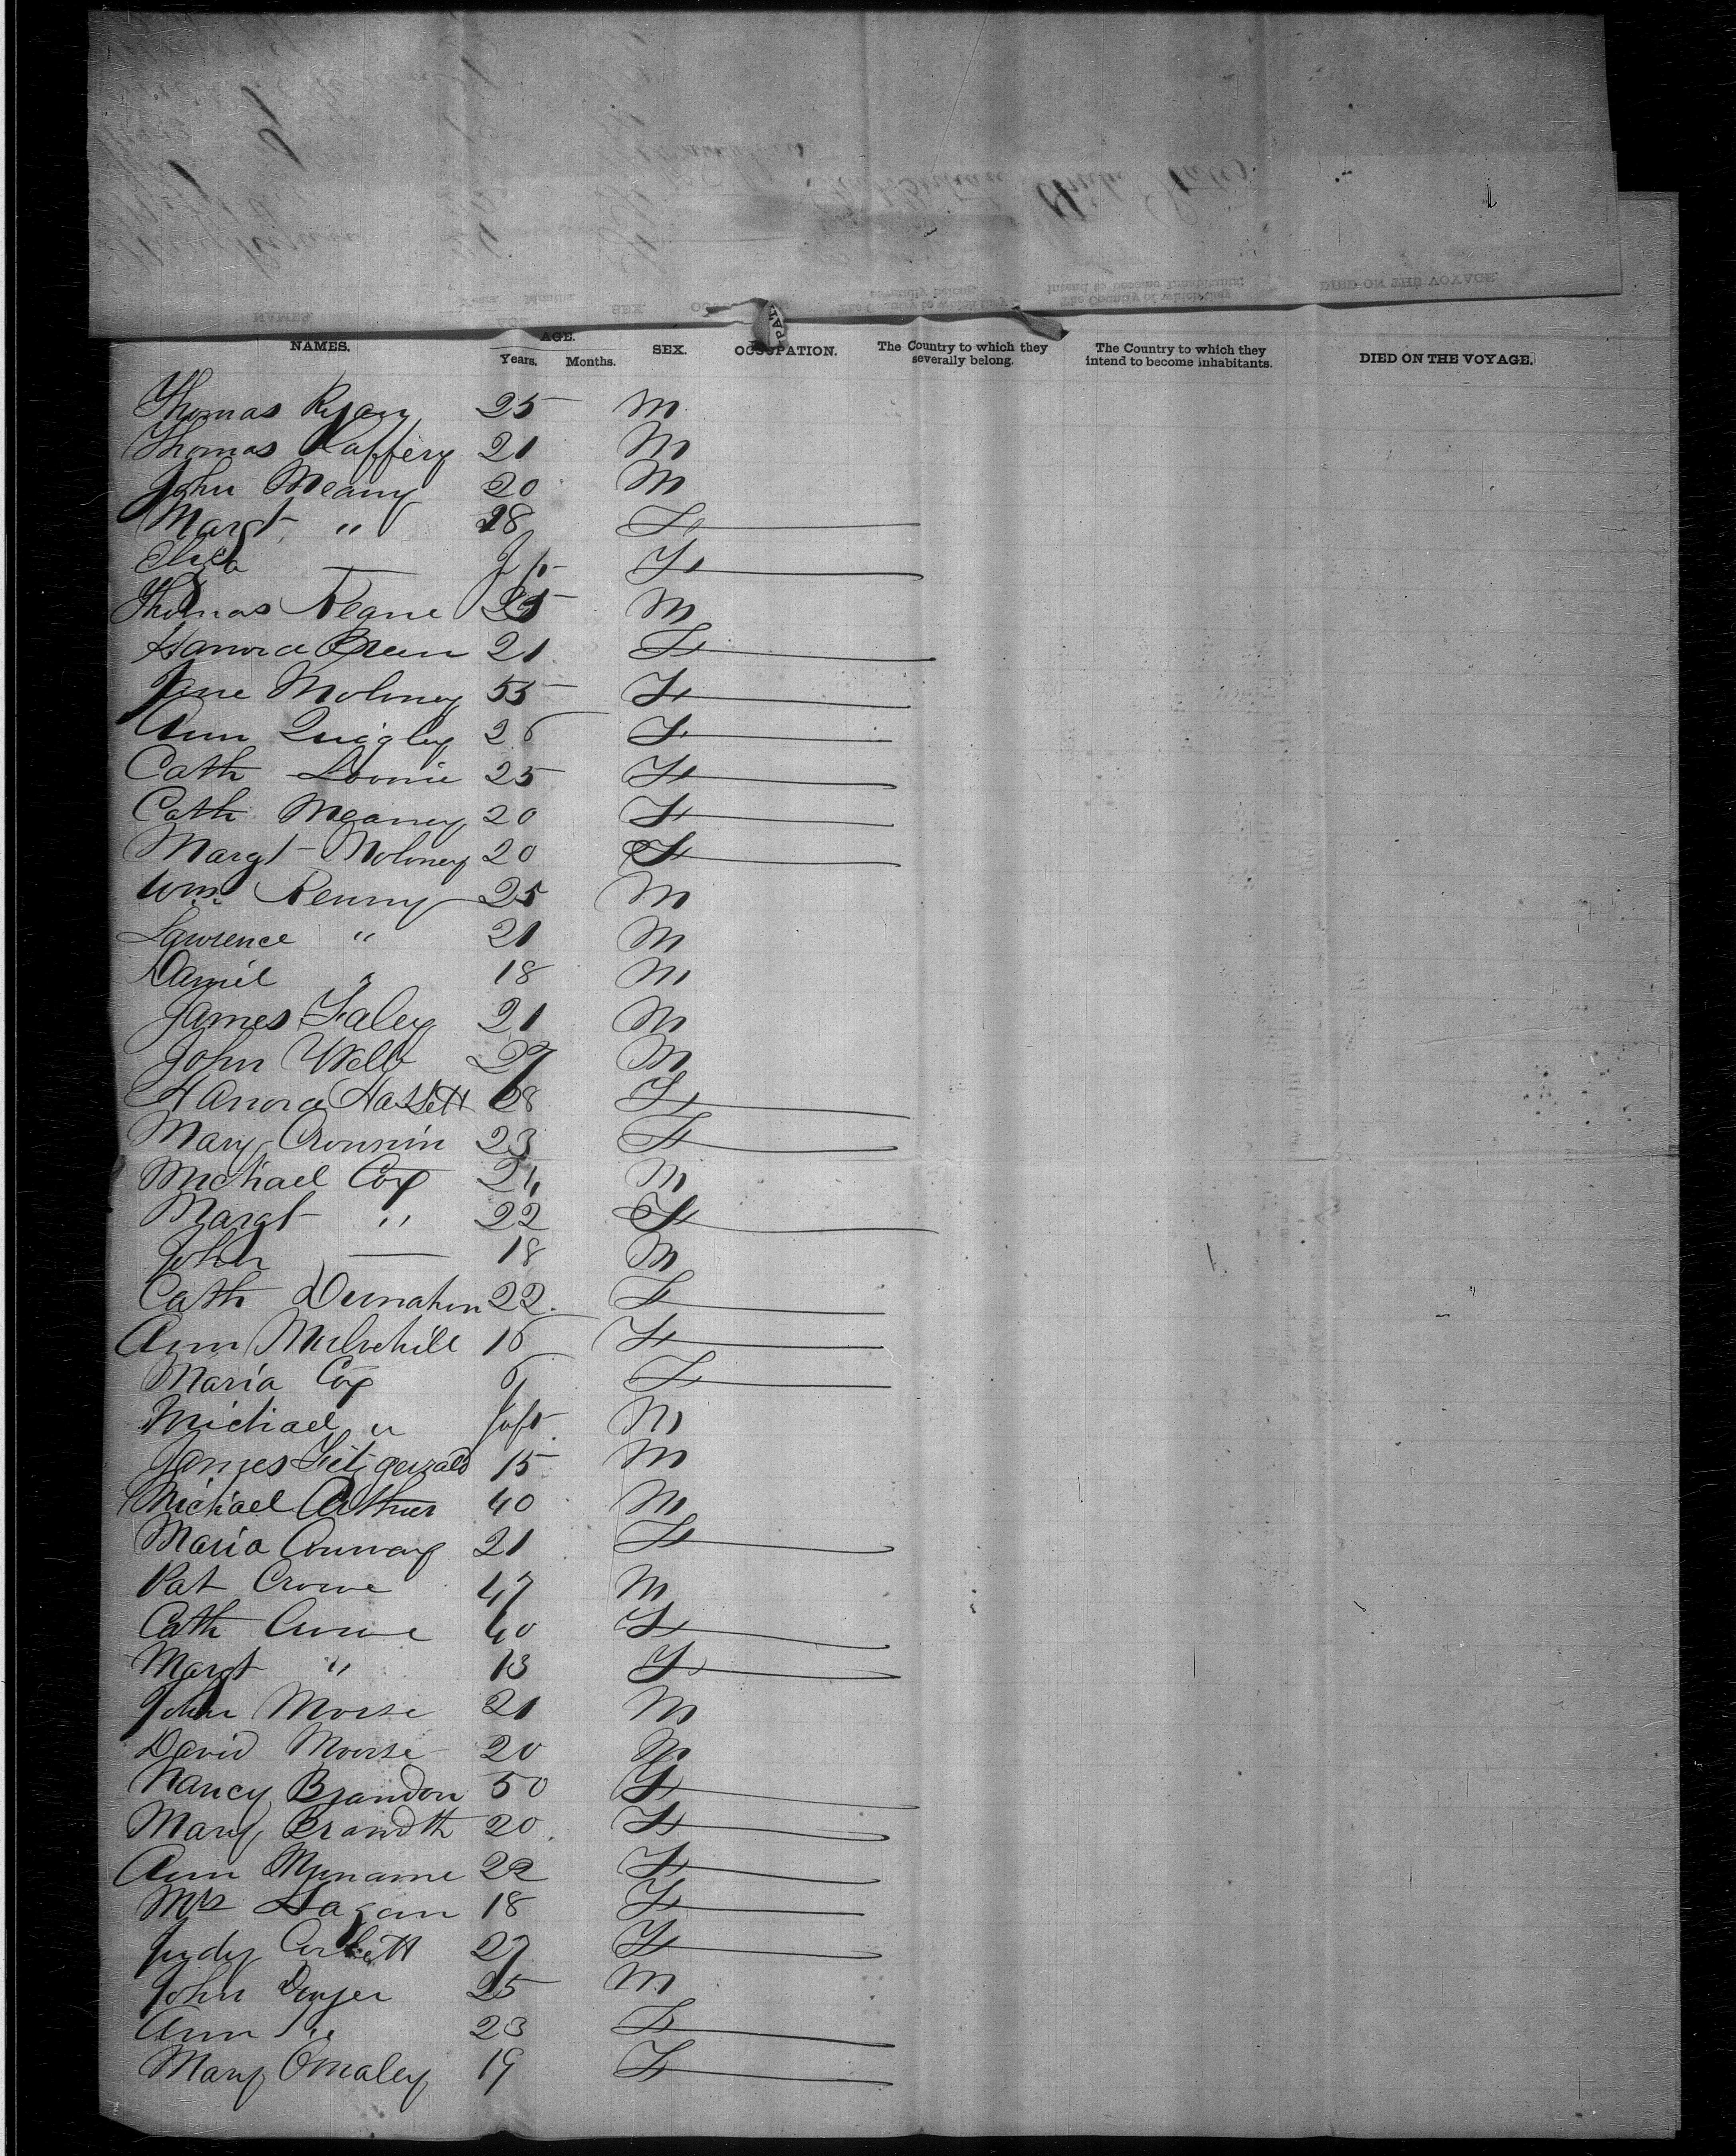 NAMES. AGE. Years. Months. SEX. OCCUPATION. The Country to which they severally belong. The Country to which they intend to become inhabitants. DIED ON THE VOYAGE.
Thomas Ryan 25 M
Thomas Raffery 21 M
John Meany 20 M
Margt " 18 F
Eliza — Inft F
Thomas Keane 25 M
Hanora Breen 21 F
Jane Moloney 55 F
Ann Quigley 26 F
Cath Loonie 25 F
Cath Meaney 20 F
Margt Moloney 20 F
Wm. Kenny 25 M
Lawrence " 21 M
Daniel " 18 M
James Faley 21 M
John Webb 27 M
Hanora Hassett 28 F
Mary Crounin 23 F
Michael Cox 24 M
Margt " 22 F
John — 18 M
Cath Dunahun 22 F
Ann Mulvehill 16 F
Maria Cox 6 F
Michael " Inft M
James Fitzgerald 15 M
Michael Arthur 40 M
Maria Conway 21 F
Pat Crowe 47 M
Cath Crowe 40 F
Margt " 13 F
John Morse 21 M
David Moorse 20 M
Nancy Brandon 50 F
Mary Brandth 20 F
Ann 22 F
Mrs Hagan 18 F
Judy Corbett 27 F
John Dwyer 25 M
Ann " 23 F
Mary Omaley 19 F